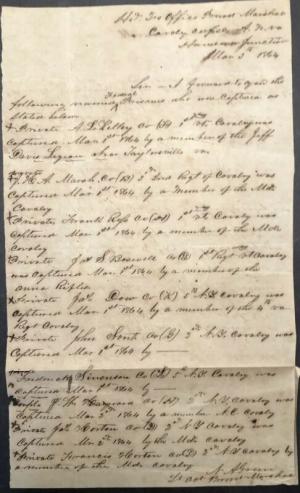 Hd Qrs Office Provost Marshal
Cavalry Corps A. N. Va
Hanover Junction
Mar 3rd 1864
Sir - I forward to you the
following named Federal Prisoners who were captured as
Stated below
Private A. L. Lilley Co (H) 1st Vt Cavalry was
Captured Mar 1st 1864 by a member of the Jeff
Davis Legion near Taylorsville Va
Marsh Co (B) 1st Regt of Cavalry was
Captured Mar 1st 1864 by a Member of the Md
Cavalry
Private Frank Ross Co (H) 1st Vt Cavalry was
Captured Mar 1st 1864 by a member of the Md
Cavalry
Private Jas S. Co (B) 1st Regt Vt Cavalry
was Captured Mar 1st 1864 by a member of the
anna Rifles
Private Jas. Dow Co (K) 5th N.Y. Cavalry was
Captured Mar 1st 1864 by a member of the 4th Va
Regt Cavalry
Private John Co (G) 5th N.Y. Cavalry was
Captured Mar 1st 1864 by
Simonson Co 5th N.Y. Cavalry was
Captured Mar 1st 1864 by
Co (H) 5th N.Y. Cavalry was
Captured Mar 2nd 1864 by a member N.C. Cavalry
Private Jas Horton Co (D) 2nd N.Y. Cavalry was
Captured Mar 2nd 1864 by the Md. Cavalry
Private Francis Horton Co (D) 2 N.Y. Cavalry by
a member of the Md. Cavalry
Green
Lt Act Provost Marshal